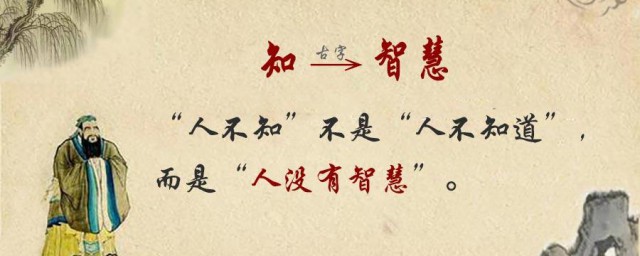 知 古字 智慧
“人不知”不是“人不知道”，
而是“人没有智慧”。